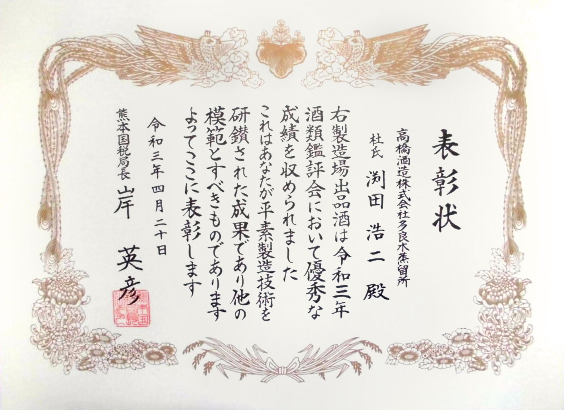 表彰状
高橋酒造株式会社多良木蒸留所
杜氏 渕田浩二殿
右製造場出品酒は令和三年
酒類鑑評会において優秀な
成績を収められました
これはあなたが平素製造技術を
研鑽された成果であり他の
模範とすべきものであります
よってここに表彰します
令和三年四月二十日
熊本国税局長 岸英彦